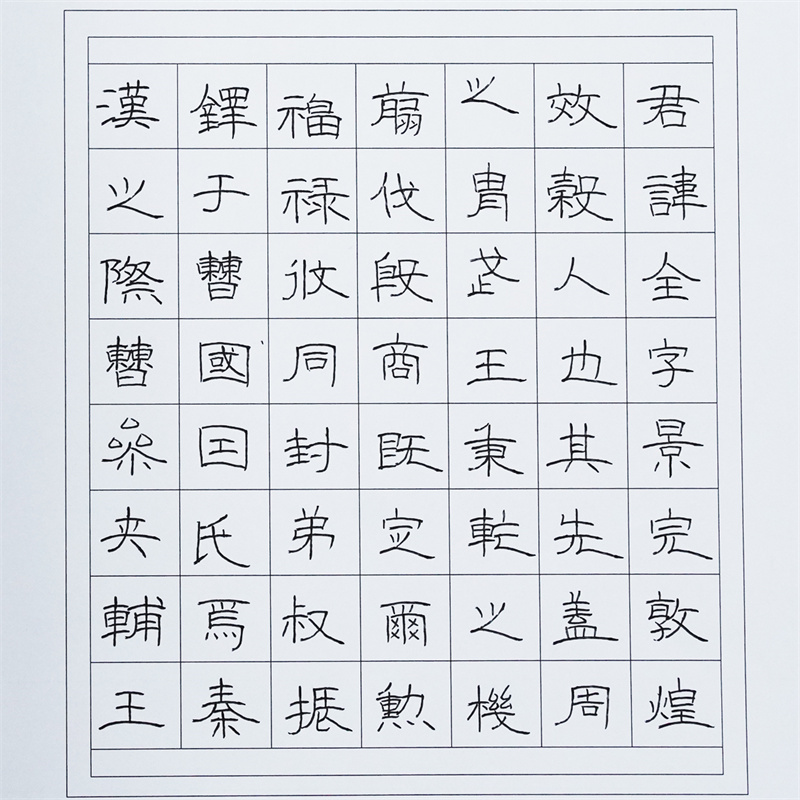 君諱全字景完敦煌
效穀人也其先盖周
之胄武王秉乾之機
翦伐殷商既定爾勳
福禄攸同封弟叔振
鐸于曹國囙氏焉秦
漢之際曹參夾輔王